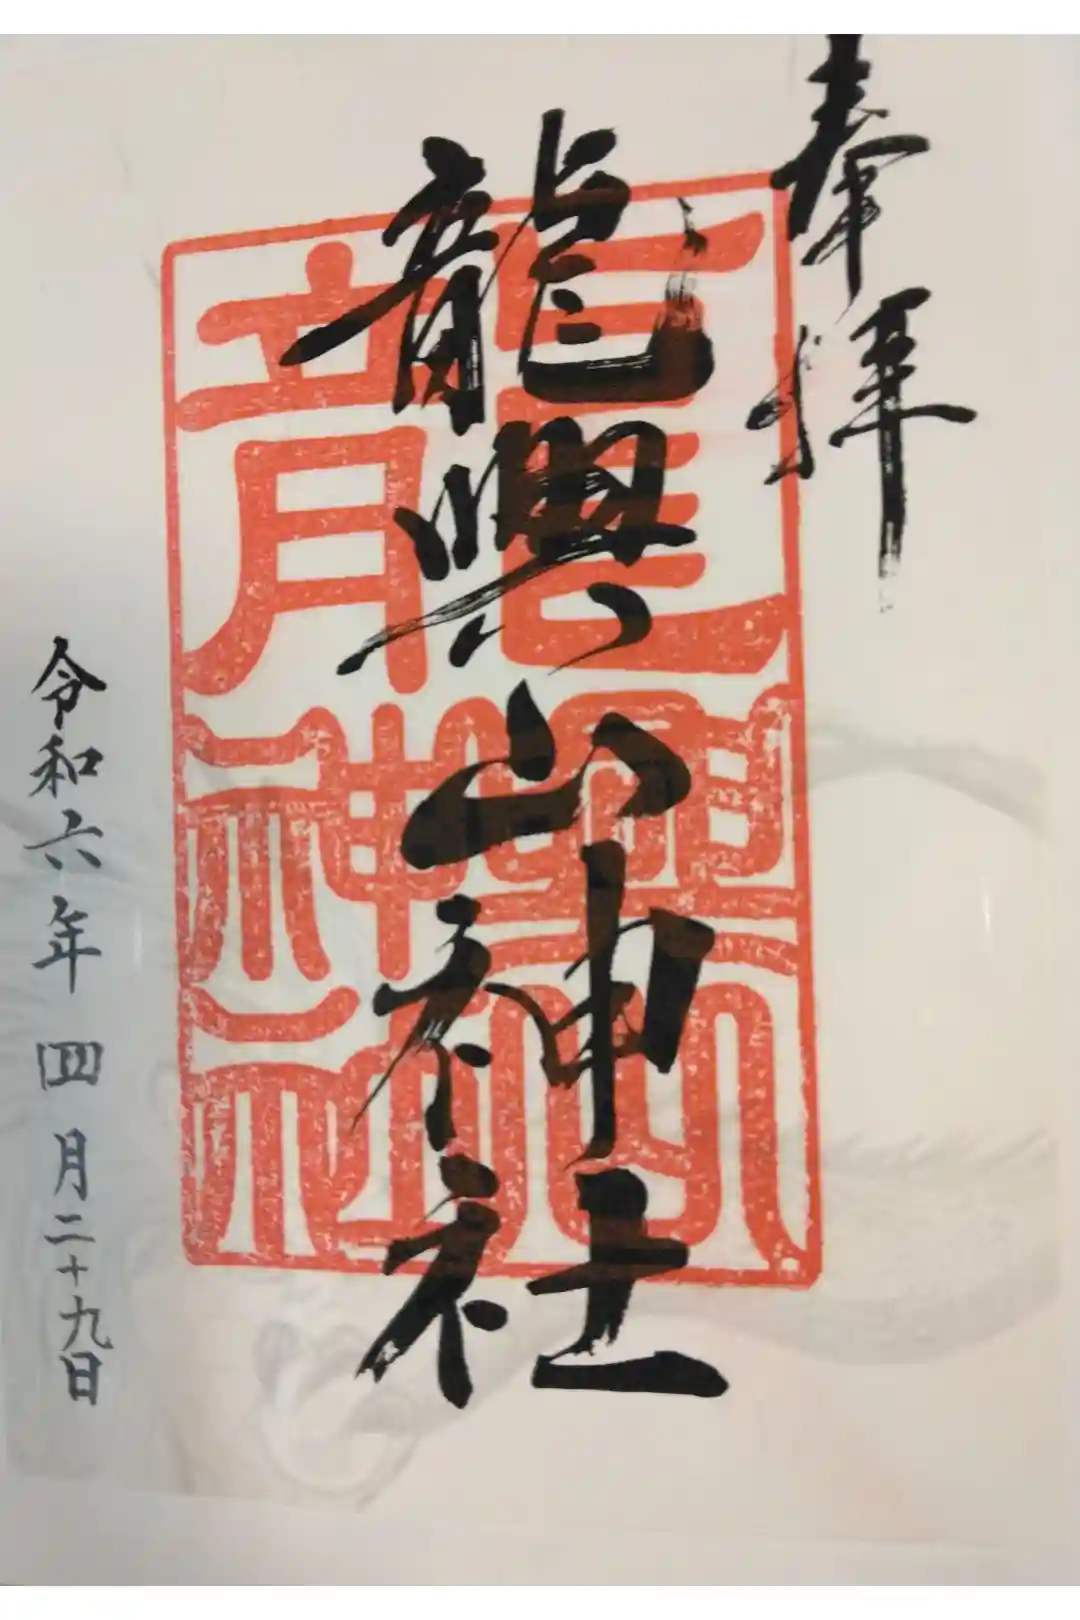 奉拝
龍興山神社
龍興山神社
令和六年四月二十九日